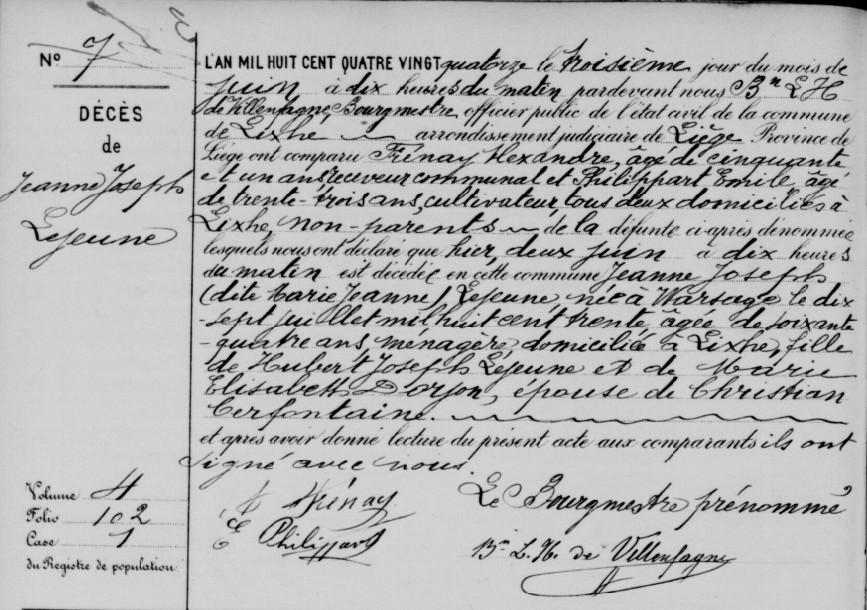 N° 7
DÉCÈS
de
Jeanne Joseph
Lejeune
Volume 4
Folio 102
Case 1
du Registre de population
L'AN MIL HUIT CENT QUATRE VINGT quatorze le troisième jour du mois de
juin à dix heures du matin pardevant nous Bⁿ L H
de Villenfagne, Bourgmestre officier public de l'état civil de la commune
de Lixhe arrondissement judiciaire de Liège Province de
Liége ont comparu Frénay Alexandre, âgé de cinquante
et un ans, receveur communal et Philippart Emile âgé
de trente-trois ans, cultivateur, tous deux domiciliés à
Lixhe, non-parents de la défunte ci-après dénommée
lesquels nous ont déclaré que hier, deux juin à dix heures
du matin est décédée en cette commune Jeanne Joseph
(dite Marie Jeanne) Lejeune, née à Warsage le dix
-sept juillet mil huit cent trente, âgée de soixante
-quatre ans, ménagère, domiciliée à Lixhe, fille
de Hubert Joseph Lejeune et de Marie
Elisabeth, épouse de Christian
Cerfontaine.
et après avoir donné lecture du présent acte aux comparants ils ont
signé avec nous.
A Frénay
E Philippart
Le Bourgmestre prénommé
Bⁿ L. H. de Villenfagne